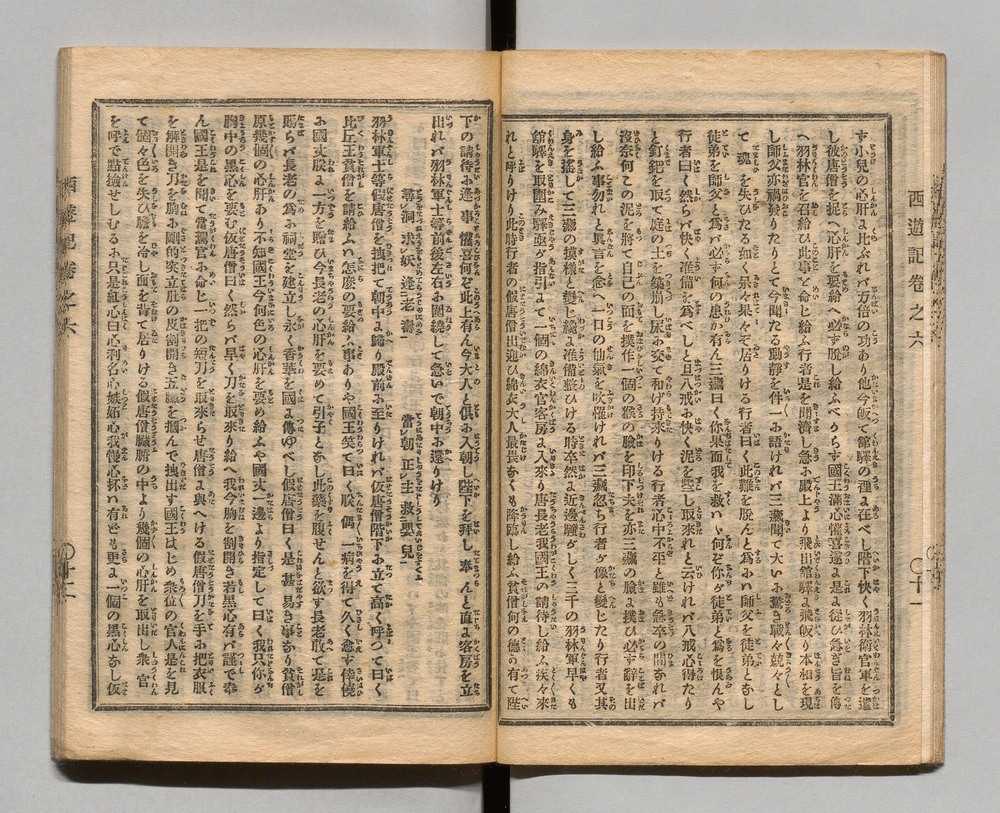 西遊記卷之六
○十一
す小兒の心肝よ比ぶれバ万倍の功あり他今皈て館驛の裡よ在べし階下快く羽林衛官軍を遣
し彼唐僧を捉へ心肝を要給へ必ず脱し給ふべからず國王滿心懽喜遂よ是よ從ひ急ぎ旨を傳
へ羽林官を召給ひ此事を命じ給ふ行者是を聞濟し急お殿上より飛出館驛よ飛皈り本相を現
し師父亦禍發りたりとて今聞たる動靜を件一お語けれバ三藏聞て大いお驚き戰々兢々とし
て魂を失ひたる如く呆々果々ぞ居りける行者曰く此難を脱んと爲おハ師父を徒弟とおし
徒弟を師父と爲バ必ず何の患か有ん三藏曰く你果而我を救ハゞ何ぞ你が徒弟と爲を恨んや
行者曰く然らバ快く准備を爲べしと且八戒お快く泥を些し取來れと云けれバ八戒心得たり
と釘鈀を取て庭の土を築崩し尿お交て和げ持來りける行者心中不平と雖も急卒の間おれバ
沒奈何この泥を將て自己の面を摸作一個の猴の臉を印下夫を亦三藏の臉よ摸ひ必ず辭を出
し給ふ事勿れと眞言を念へ一口の仙氣を吹催けれバ三藏忽ち行者が像と變じたり行者又其
身を搖して三藏の摸樣と變じ纔よ准備整ひける時卒然よ近邊騷がしく三千の羽林軍早くも
館驛を取圍み驛亟が指引よて一個の綿衣官客房よ入來り唐長老我國王の請待し給ふ疾々來
れと呼りけり此時行者の假唐僧出迎ひ綿衣大人最畏おくも降臨し給ふ貧僧何の德の有てバ陛
下の請待お逢事懽喜何ぞ此上有ん今大人と俱お入朝し陛下を拜し奉んと直よ客房を立
出れバ羽林軍士等前後左右お圍繞して急いで朝中お還りけり
尋洞求妖逢老壽　當朝正主救嬰兒
羽林軍士等假唐僧を拽把て朝中よ歸り殿前お至りけれバ仮唐僧階下お立て高く呼つて曰く
比丘王貧僧を請給ふハ怎麽の要給ふ事ありや國王笑て曰く朕偶一病を得て久く愈ず僥僥
お國丈朕よ一方を贈ひ今長老の心肝を要めて引子とおし此藥を服せんと欲す長老敢て是を
賜らバ長老の爲お祠堂を建立し永く香華を國よ傳ゆべし假唐僧曰く是甚易き事おり貧僧
原幾個の心肝あり不知國王今何色の心肝を要め給ふや國丈一邊より指定して曰く我只你が
胸中の黑心を要む仮唐僧曰く然らバ早く刀を取來り給へ我今胸を割開き若黑心有バ謹で奉
ん國王是を聞て當駕官お命じ一把の短刀を取來らせ唐僧よ與へける假唐僧刀を手お把衣服
を解開き刀を胸お剛的突立肚の皮割開き五臟を摑んで拽出す國王はじめ衆位の官人是を見
て個々色を失ひ膽を冷し面を背て居りける假唐僧臟腑の中より幾個の心肝を取出し衆官
を呼で點撿せしむるお只是紅心白心利名心嫉妬心我慢心抔ハ有ども更よ一個の黑心おし仮
西遊記卷之六
○十二